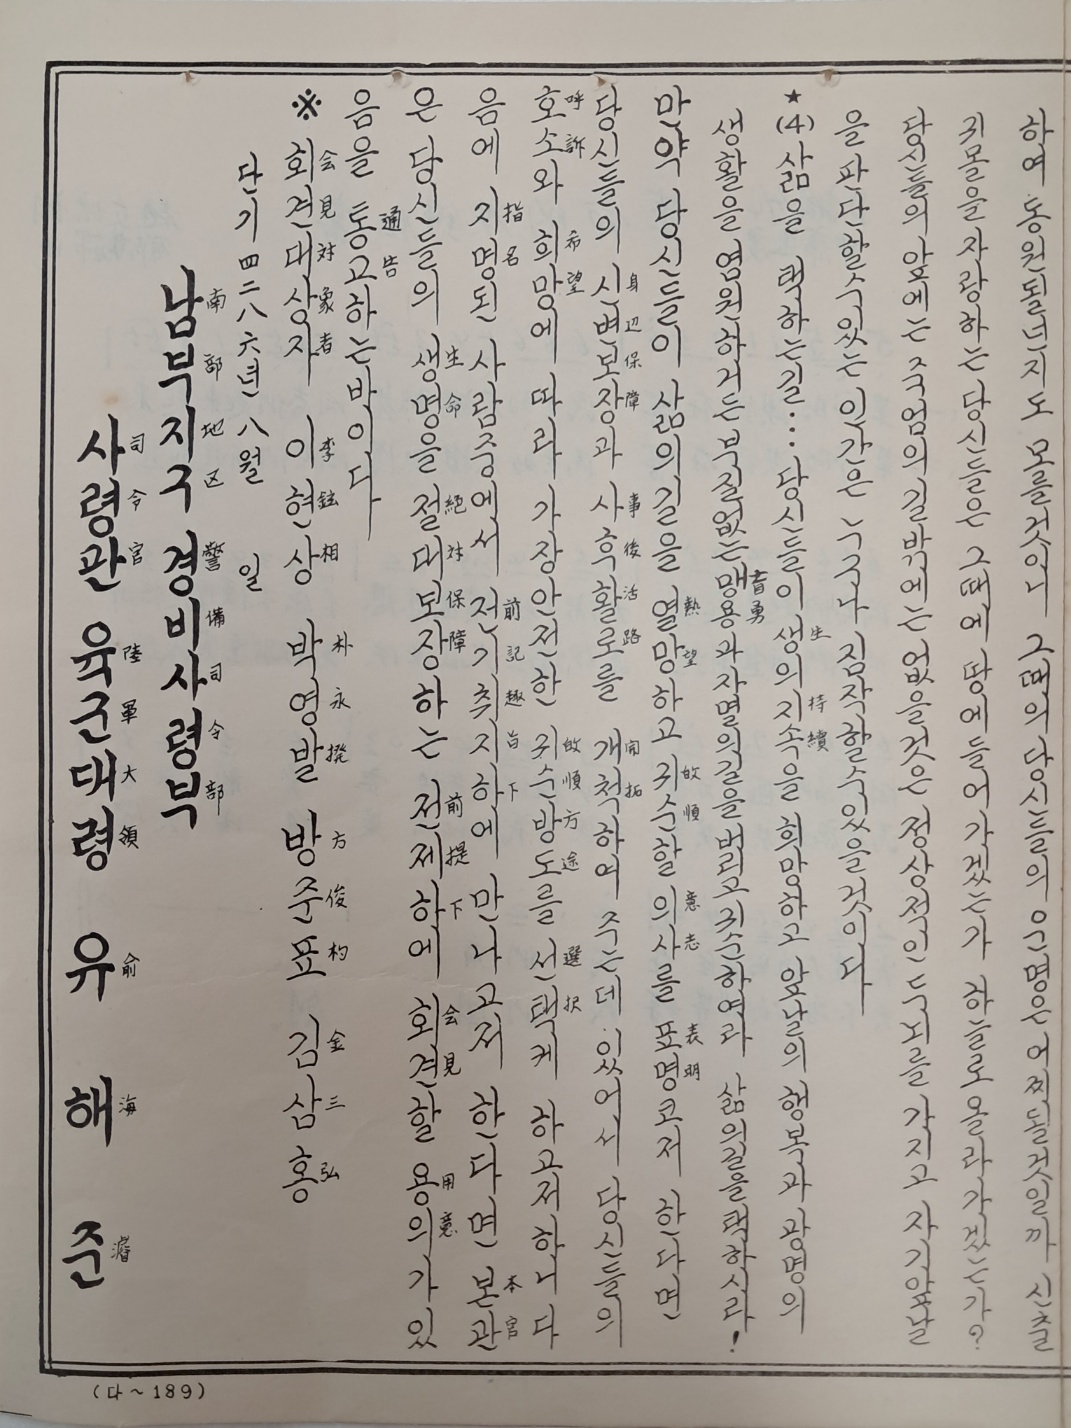 하여 동원될넌지도 모를것이니 그때의 당신들의 운명은 어찌될것일까 신출
귀몰을 자랑하는 당신들은 그때에 땅에 들어가겠는가 하늘로 올라가겠는가?
당신들의 앞에는 죽엄의 길밖에는 없을것은 정상적인 두뇌를 가지고 자기앞날
을 판단할수있는 인간은 누구나 짐작할수있을 것이다
★(4) 삶을 택하는길…: 당신들이 생의 지속을 희망하고 앞날의 행복과 광명의 生 持續
생활을 염원하거든 부질없는 맹용과 자멸의길을 버리고 귀순하여라 삶의길을 택하시라! 盲勇
만약 당신들이 삶의길을 열망하고 귀순할 의사를 표명코저 한다면 熱望 故順 意志 表明
당신들의 신변보장과 사후활로를 개척하여 주는데 있어서 당신들의 身辺保障 事後活路 開拓
호소와 희망에 따라 가장안전한 귀순방도를 선택케 하고저하니 다 呼訴 希望 故順方途 選択
음에 지명된 사람중에서 전기취지하에 만나고저 한다면 본관 指名 前記趣旨下 本官
은 당신들의 생명을 절대보장하는 전제하에 회견할 용의가 있 生命 絕対保障 前提下 会見 用意
음을 통고하는바이다 通告
※ 회견대상자 이현상 박영발 방준표 김삼홍 会見対象者 李鉉相 朴永撥 方俊杓 金三弘
단기 四二八六년 八월 일
남부지구 경비사령부 南部地区 警備司令部
사령관 육군대령 유해준 司令官 陸軍大領 俞海濬
(다~189)